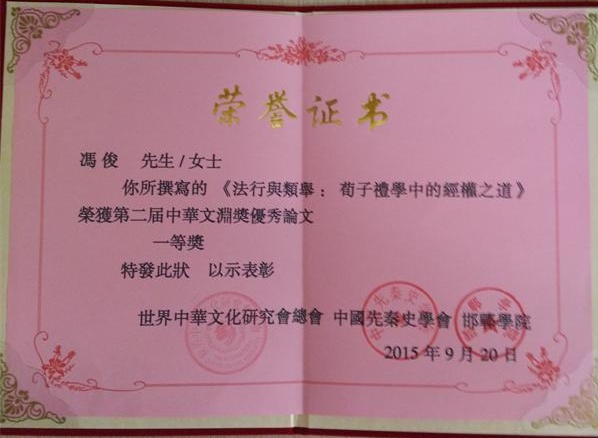 荣誉证书
馮俊 先生/女士
你所撰寫的《法行與類舉：荀子禮學中的經權之道》
榮獲第二届中華文淵奬優秀論文
一等獎
特發此狀 以示表彰
世界中華文化研究會總會 中國先秦史學會 邯鄲學院
2015年9月20日